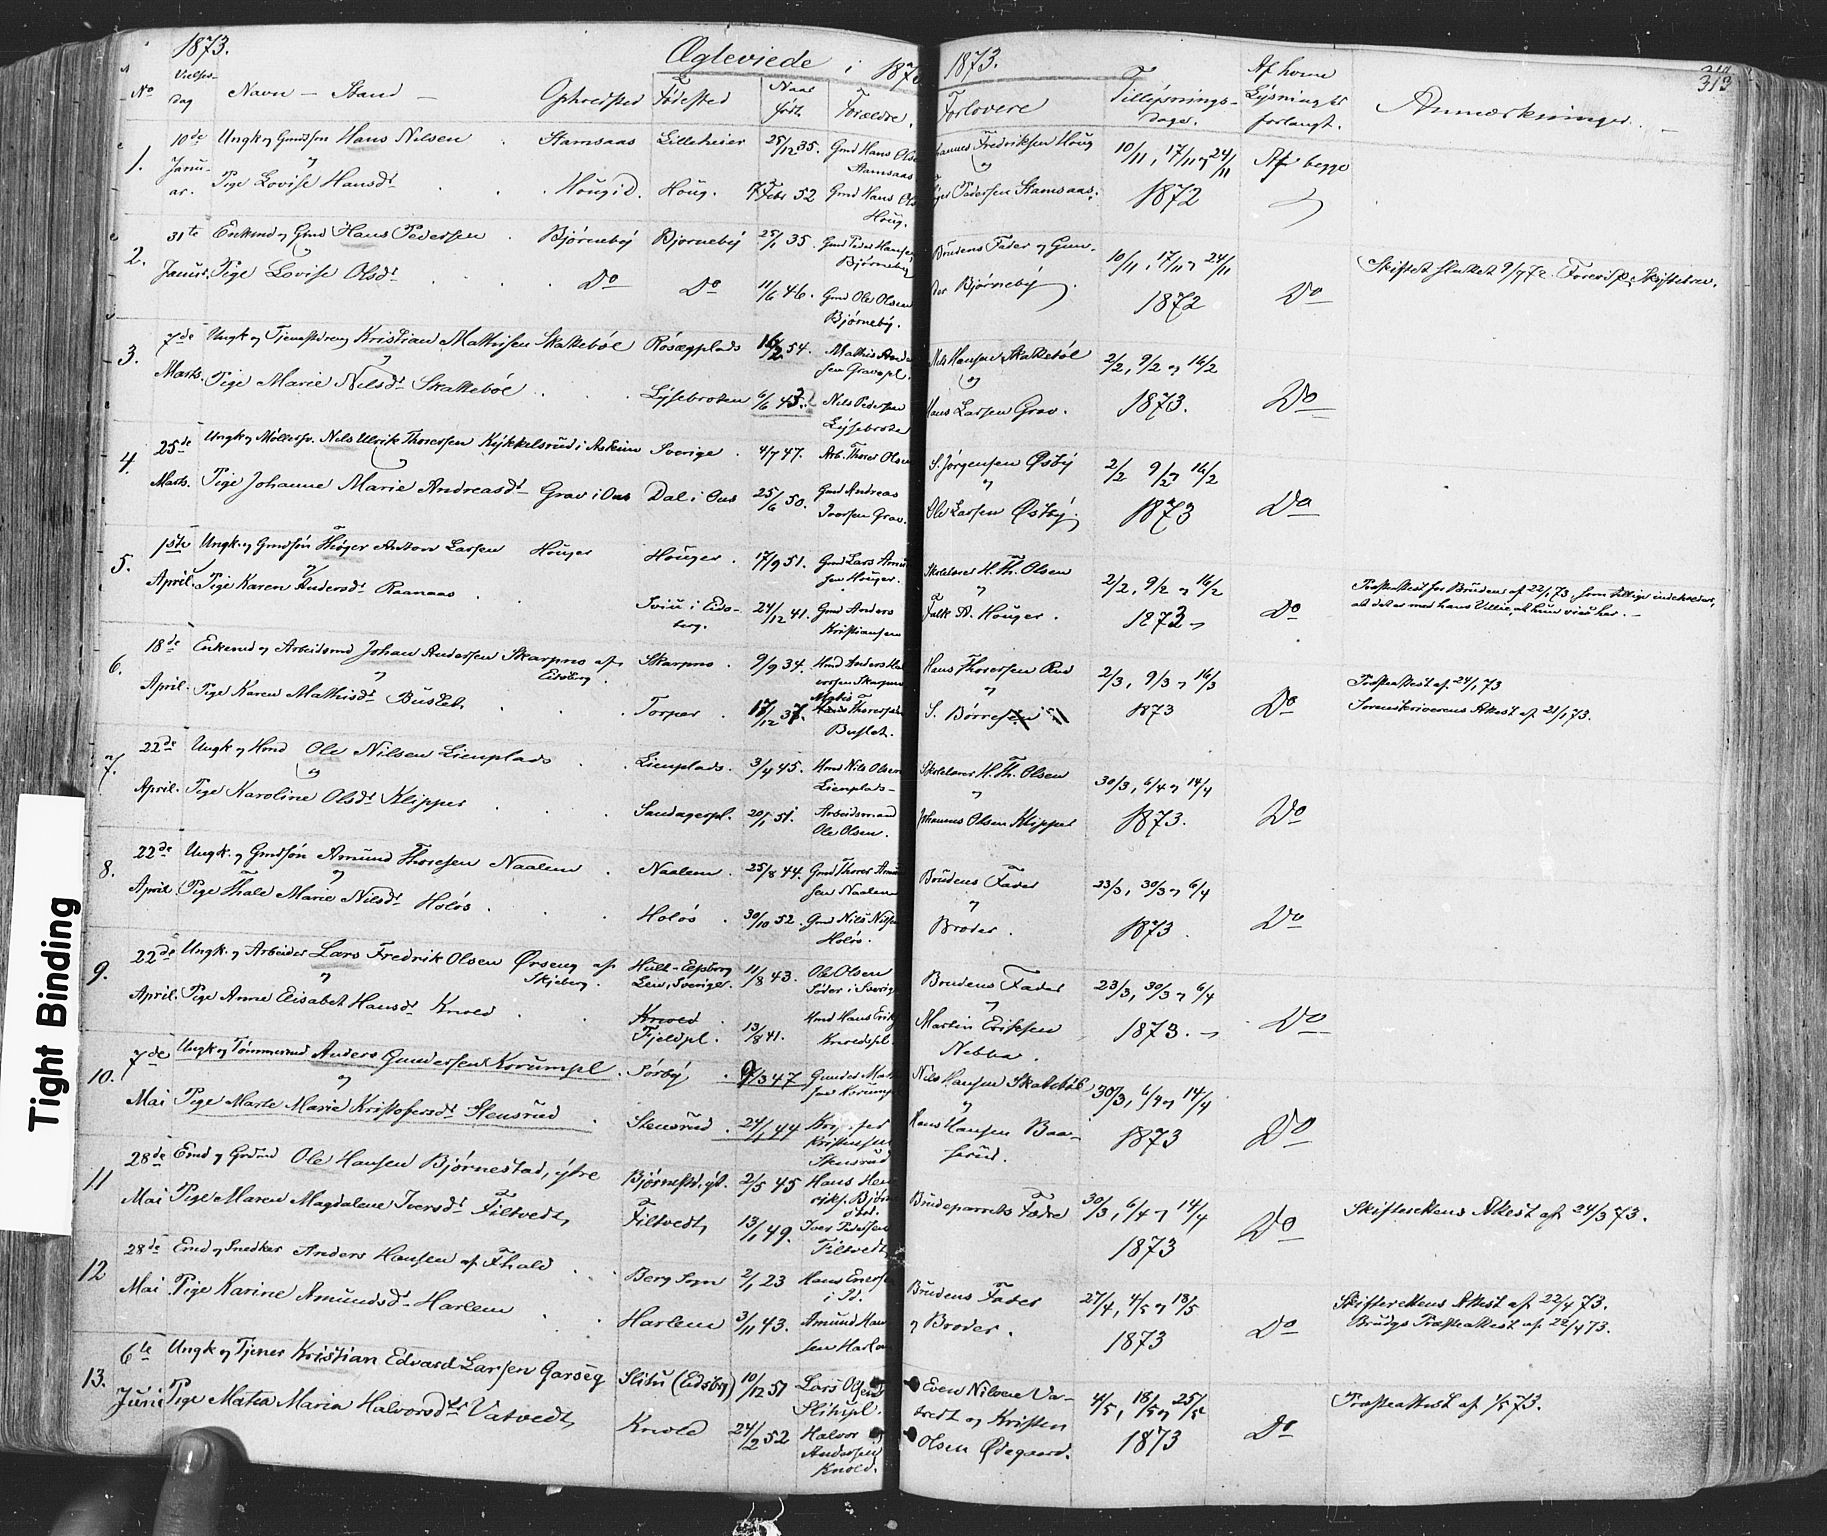 1873. Ægteviede i 187 1873. 313
No Vielses-dag Navn — Stand — Opholdsted Fødested Naar født. Forældre. Forlovere Tillysnings-dager. Af hvem Lysning er forlangt. Anmærkninger.
1. 10de Ungk. og Gmdsøn Hans Nilsen Stamsaas Lilleheier 25/12 35. Gmd Hans Olsen Stamsaas Johannes Fredriksen Houg 10/11, 17/11 og 24/11 Af begge
Januar. og Pige Lovise Hansdt Hougid. Houg. 17 Febr 52 Gmd Hans Ols Houg. Pedersen Stamsaas. 1872
2. 31te Enkemd og Gmd Hans Pedersen Bjørneby Bjørneby 25/1 35. Gmd Peder Hansen Bjørneby Brudens Fader og Gun- 10/11, 17/11 og 24/11
Januar. og Pige Lovise Olsdt Do Do 11/6 46. Gmd Ole Olsen Bjørneby. der Bjørneby. 1872 Do Skiftet sluttet 9/7 72.
3. 7de Ungk. og Tjenestdreng Kristian Mathisen Skattebøl Røsægplads 16/2 54. Mathis Andersen Gravpl. Nils Hansen Skattebøl 2/2, 9/2 og 16/2
Marts. og Pige Marie Nilsdt Skattebøl Lysebroten 6/6 43. Nils Pedersen Lysebrote og Hans Larsen Grav. 1873. Do
4. 25de Ungk. og Møllersv. Nils Ulrik Thoresen Kykkelsrud i Askim Sverige 4/7 47. Arb. Thorer Olsen S. Jørgensen Østby 2/2 9/2 og 16/2
Marts. og Pige Johanne Marie Andreasdt Grav i Ous Dal i Ous 25/6 50. Gmd Andreas Iversen Grav. og Ole Larsen Østby. 1873 Do
5. 1ste Ungk. og Gmdsøn Thøger Anton Larsen Houger Houger 17/9 51. Gmd Lars Amundsen Houger. Skolelærer H. Th. Olsen 2/2, 9/2 og 16/2
April. og Pige Karen Andersdt Raanaas i Eidsberg. 24/12 41. Gmd Anders Kristiansen og Falk A. Houger. 1873 Do Præsteattest for Bruden af 22/1 73, som tillige indeholder, at det er med hans Villie, at hun vies her. —
6. 18de Enkemd og Arbeidsmd Johan Andersen Skarpno af Eidsberg. Skarpno 9/9 34. Hmd Anders Hal Skarpno Hans Thoresen Rud 2/3, 9/3 og 16/3
April og Pige Karen Mathisdt Buslet. Torper 17/12 37. Matis Thoresen Buslet. og S. Børresen 1873 Do Præsteattest af 24/1 73 Sorenskriverens Attest af 21/1 73.
7. 22de Ungk. og Hmd Ole Nilsen Lienplads Lienplads. 3/4 45. Hmd Nils Olsen Lienplads- Skolelærer H. Th. Olsen 30/3, 6/4 og 14/4
April. og Pige Karoline Olsdt Klipper Sandagerpl. 20/1 51. Arbeidsmand Ole Olsen. og Johannes Olsen Klipper 1873. Do
8. 22de Ungk. og Gmdsøn Amund Thoresen Naalem Naalem 25/8 44. Gmd Thorer Amundsen Naalem Brudens Fader 23/3, 30/3 og 6/4
April og Pige Thale Marie Nilsdt Holøs Holøs 30/10 52. Gmd Nils Nilsen Holøs. og Broder. 1873 Do
9. 22de Ungk. og Arbeider Lars Fredrik Olsen Ørseng af Skjeberg. Hult-Elfsborg Len, Sverige. 11/8 43. Ole Olsen Søder i Sverige Brudens Fader 23/3, 30/3 og 6/4
April. og Pige Anne Elisabet Hansdt Knold Knold Fjeldpl. 13/8 41. Hmd Hans Erik Knoldspl og Martin Eriksen Nebba. 1873. Do
10. 7de Ungk. og Tømmermd Anders Gundersen Korumpl. Sørby 9/3 47 Gunder Mat Korump Nils Hansen Skatebøl 30/3, 6/4 og 14/4
Mai og Pige Marte Marie Kristofersdt Stensrud Stensrud 24/1 44 Kristensen Stensrud og Hans Hansen Baaserud. 1873 Do
11 28de Emd og Grdmd Ole Hansen Bjørnestad, ytre Bjørnestd, yt. 2/5 45 Hans Henriks. Bjørnestad. Brudeparrets Fædre 30/3, 6/4 og 14/4
Mai Pige Maren Magdalene Iversdt Filtvedt, Filtvedt, 13/1 49. Iver Pedersen Filtvedt 1873 Do Skifterettens Attest af 24/3 73.
12 28de Emd og Snedker Anders Hansen af Fhald Berg Sogn 2/1 23 Hans Enersen i Id. Brudens Fader 27/4, 4/5 og 18/5 Skifterettens Attest af 22/4 73.
Mai Pige Karine Amundsdt Harlem Harlem 3/11 43. Amund Hansen Harlem og Broder. 1873 Do Brudgs Præsteattest af 22/4 73.
13. 6te Ungk. og Tjener Kristian Edvard Larsen Garseg Slitu (Eidsbg) 10/12 51 Lars Olsen Slitupl. Even Nilsen Vatvedt og Kristen 4/5, 18/5 og 25/5 Præsteattest af 1/5 73.
Juni Pige Matea Maria Halvorsdtr Vatvedt, Knold 24/2 52 Halvor Andersen Knold. Olsen Ødegaard. 1873 Do
Tight Binding